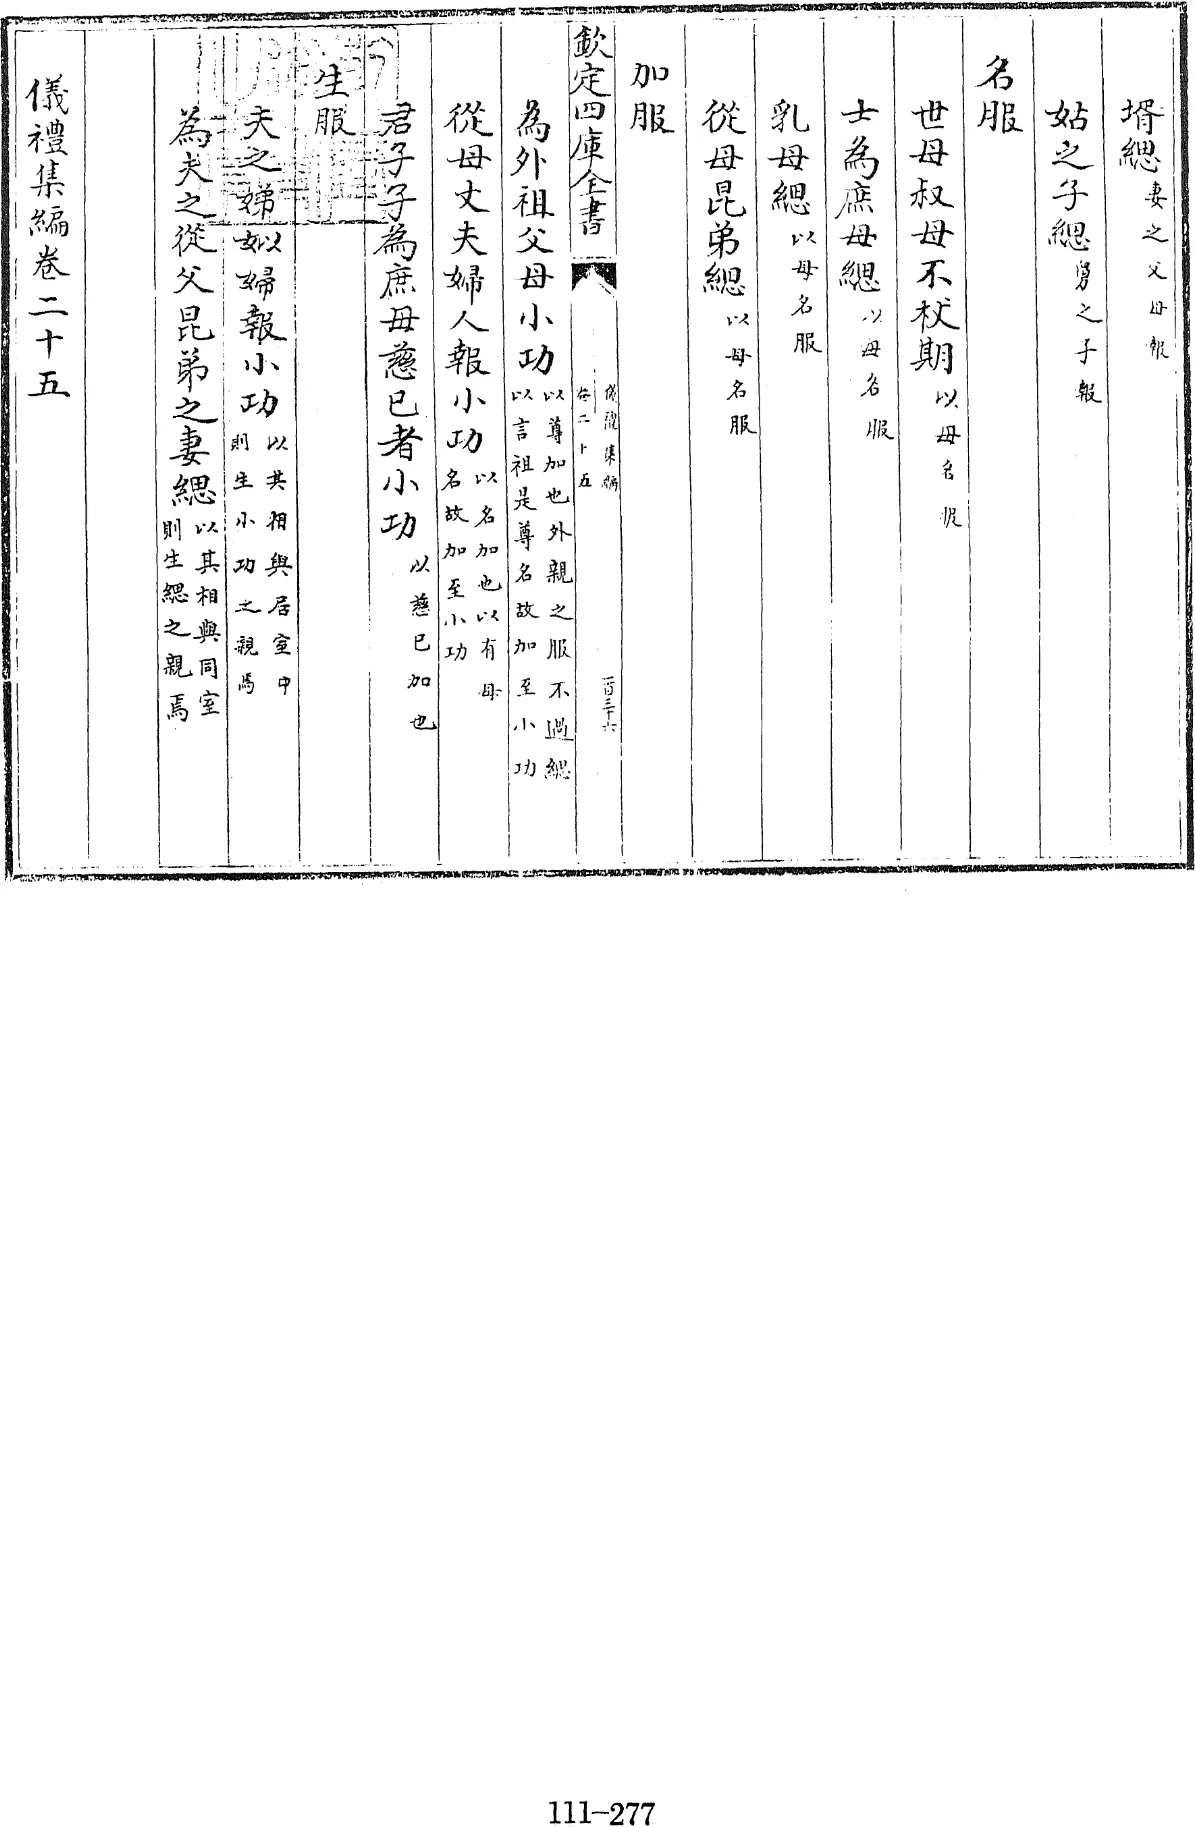 壻緦妻之父母報
姑之子緦舅之子報
名服
世母叔母不杖期以母名服
士為庶母緦以母名服
乳母緦以母名服
從母昆弟緦以母名服
加服
欽定四庫全書
儀禮集編
卷二十五
一百三十六
為外祖父母小功以尊加也外親之服不過緦
以言祖是尊名故加至小功
從母丈夫婦人報小功以名加也以有母
名故加至小功
君子子為庶母慈已者小功以慈已加也
生服
夫之娣姒婦報小功以其相與居室中
則生小功之親焉
為夫之從父昆弟之妻緦以其相與同室
則生緦之親焉
儀禮集編卷二十五
111-277